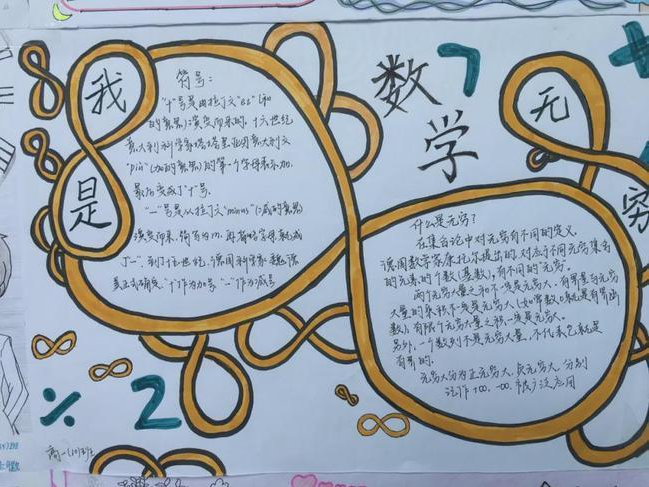 我
是
数
学
7
无
穷
符号：
"十"号是由拉丁文"et"（和
的意思）演变而来的，十六世纪
意大利科学家塔塔里亚用意大利文
"più"（加的意思）的第一个字母表示加，
最后变成了"十"号。
"—"号是从拉丁文"minus"（减的意思）
演变而来，简写为m，再省略字母就成
了"—"，到了十五世纪，德国科学家魏德
美正式确定："十"作为加号，"—"作为减号
什么是无穷？
在集合论中对无穷有不同的定义，
德国数学家康托尔提出的，对应于不同无穷集合
的元素的个数（基数），有不同的"无穷。
两个无穷大量之和不一定是无穷大，有界量与无穷
大量的乘积不一定是无穷大（如常数0就是有界函
数），有限个无穷大量之积一定是无穷大。
另外，一个数列不是无穷大量，不代表它就是
有界的。
无穷大分为正无穷大，负无穷大，分别
记作+∞，-∞
应用
÷
2
+
高一(11)班